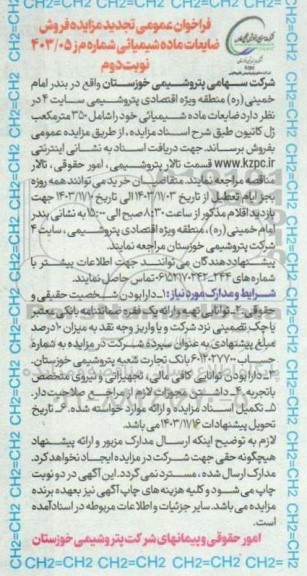 فراخوان عمومی تجدید مزایده فروش
ضایعات ماده شیمیائی شماره م ز ۴۰۳/۰۵
نوبت دوم
شرکت سهامی پتروشیمی خوزستان واقع در بندر امام
خمینی (ره) منطقه ویژه اقتصادی پتروشیمی سایت ۴ در
نظر دارد ضایعات ماده شیمیائی خود را شامل ۳۵۰ مترمکعب
ژل کاتیون طبق شرح اسناد مزایده ، از طریق مزایده عمومی
بفروش برساند. جهت دریافت اسناد به نشانی اینترنتی
www.kzpc.ir قسمت تالار پتروشیمی ، امور حقوقی ، تالار
مناقصه مراجعه نمایند. متقاضیان خرید می توانند همه روزه
بجز ایام تعطیل از تاریخ ۱۴۰۳/۱۱/۰۳ الی تاریخ ۱۴۰۳/۱۱/ جهت
بازدید اقلام مذکور از ساعت ۸:۳۰ صبح الی ۱۵:۰۰ به نشانی بندر
امام خمینی (ره)، منطقه ویژه اقتصادی پتروشیمی، سایت ۴
شرکت پتروشیمی خوزستان مراجعه نمایند.
پیشنهاددهندگان می توانند جهت اطلاعات بیشتر با
شماره های تماس حاصل نمایند.
شرایط و مدارک مورد نیاز : ۱ـ دارا بودن شخصیت حقیقی و
حقوقی ۲ـ توانایی تهیه و ارائه یک فقره ضمانتنامه بانکی معتبر
یا چک تضمینی نزد شرکت و یا واریز وجه نقد به میزان ۱۰ درصد
مبلغ پیشنهادی به عنوان سپرده شرکت در مزایده به شماره
حساب ۶۰۱۲۰۲۷۷۰۰ بانک تجارت شعبه پتروشیمی خوزستان.
۳ـ دارا بودن توانایی کافی مالی ، تجهیزاتی و نیروی متخصص
با تجربه ۴ـ داشتن مجوزات لازم از مراجع صلاحیت دار.
۵ـ تکمیل اسناد مزایده و ارائه موارد خواسته شده. ۶ـ تاریخ
تحویل پیشنهادات ۱۴۰۳/۱۱/۱۶ می باشد.
لازم به توضیح اینکه ارسال مدارک مزبور و ارائه پیشنهاد
هیچگونه حقی جهت شرکت در مزایده ایجاد نخواهد کرد.
مدارک ارسال شده ، مسترد نمی گردد. این آگهی در دو نوبت
چاپ می شود و کلیه هزینه های چاپ آگهی نیز بعهده برنده
مزایده می باشد. سایر جزئیات و اطلاعات مربوطه در اسناد آمده
است.
امور حقوقی و پیمانهای شرکت پتروشیمی خوزستان